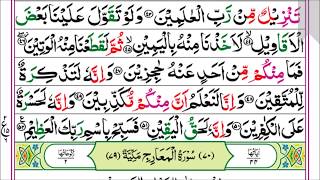 تَنْزِيْلٌ مِّنْ رَّبِّ الْعٰلَمِيْنَ ﴿۴۳﴾ وَلَوْ تَقَوَّلَ عَلَيْنَا بَعْضَ
الْاَقَاوِيْلِ ﴿۴۴﴾ لَاَخَذْنَا مِنْهُ بِالْيَمِيْنِ ﴿۴۵﴾ ثُمَّ لَقَطَعْنَا مِنْهُ الْوَتِيْنَ ﴿۴۶﴾
فَمَا مِنْكُمْ مِّنْ اَحَدٍ عَنْهُ حٰجِزِيْنَ ﴿۴۷﴾ وَاِنَّهٗ لَتَذْكِرَةٌ
لِّلْمُتَّقِيْنَ ﴿۴۸﴾ وَاِنَّا لَنَعْلَمُ اَنَّ مِنْكُمْ مُّكَذِّبِيْنَ ﴿۴۹﴾ وَاِنَّهٗ لَحَسْرَةٌ
عَلَى الْكٰفِرِيْنَ ﴿۵۰﴾ وَاِنَّهٗ لَحَقُّ الْيَقِيْنِ ﴿۵۱﴾ فَسَبِّحْ بِاسْمِ رَبِّكَ الْعَظِيْمِ ﴿۵۲﴾
(۷۰) سُوْرَةُ الْمَعَارِجِ مَكِّيَّةٌ (۷۹)